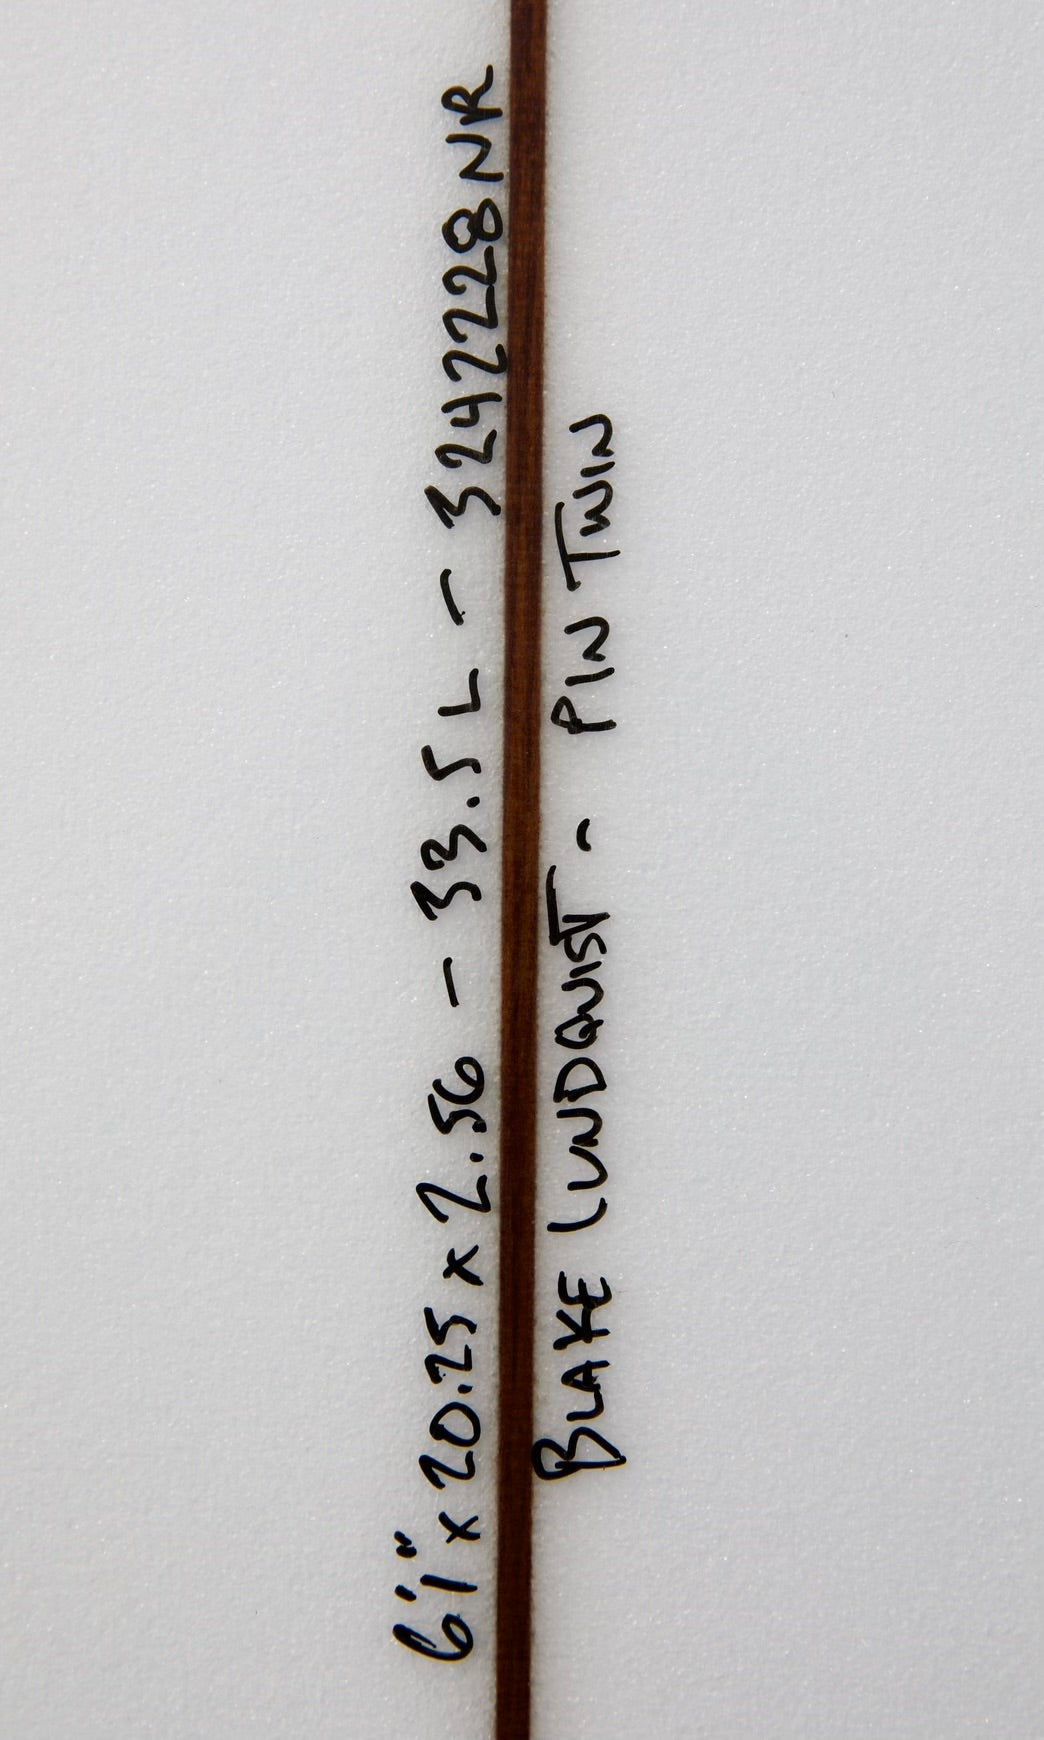 6'1" x 20.25 x 2.56 - 33.5 L - 3242228 NR
BLAKE LUNDQUIST - PIN TWIN